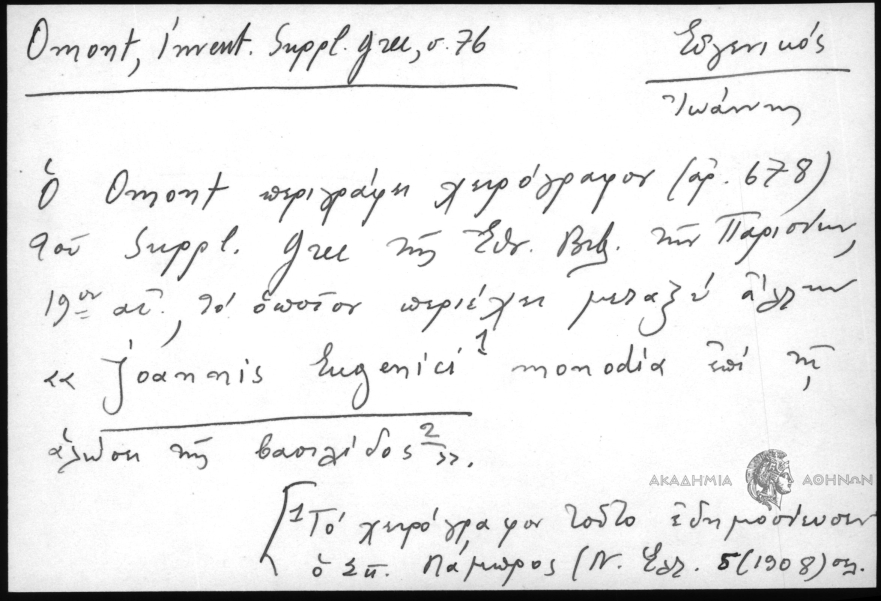 Omont, Invent. Suppl. grec, σ. 76
Εὐγενικός
Ἰωάννης
Ὁ Omont περιγράφει χειρόγραφον (ἀρ. 678)
τοῦ Suppl. grec τῆς Ἐθν. Βιβ. τῶν Παρισίων,
19ου αἰ., τό ὁποῖον περιέχει μεταξύ ἄλλων
«Joannis Eugenici¹ monodia ἐπί τῇ
ἁλώσει τῆς βασιλίδος²».
ΑΚΑΔΗΜΙΑ ΑΘΗΝΩΝ
[1 Τό χειρόγραφον τοῦτο ἐδημοσίευσεν
ὁ Σπ. Λάμπρος (Ν. Ἑλλ. 5 (1908) σελ.